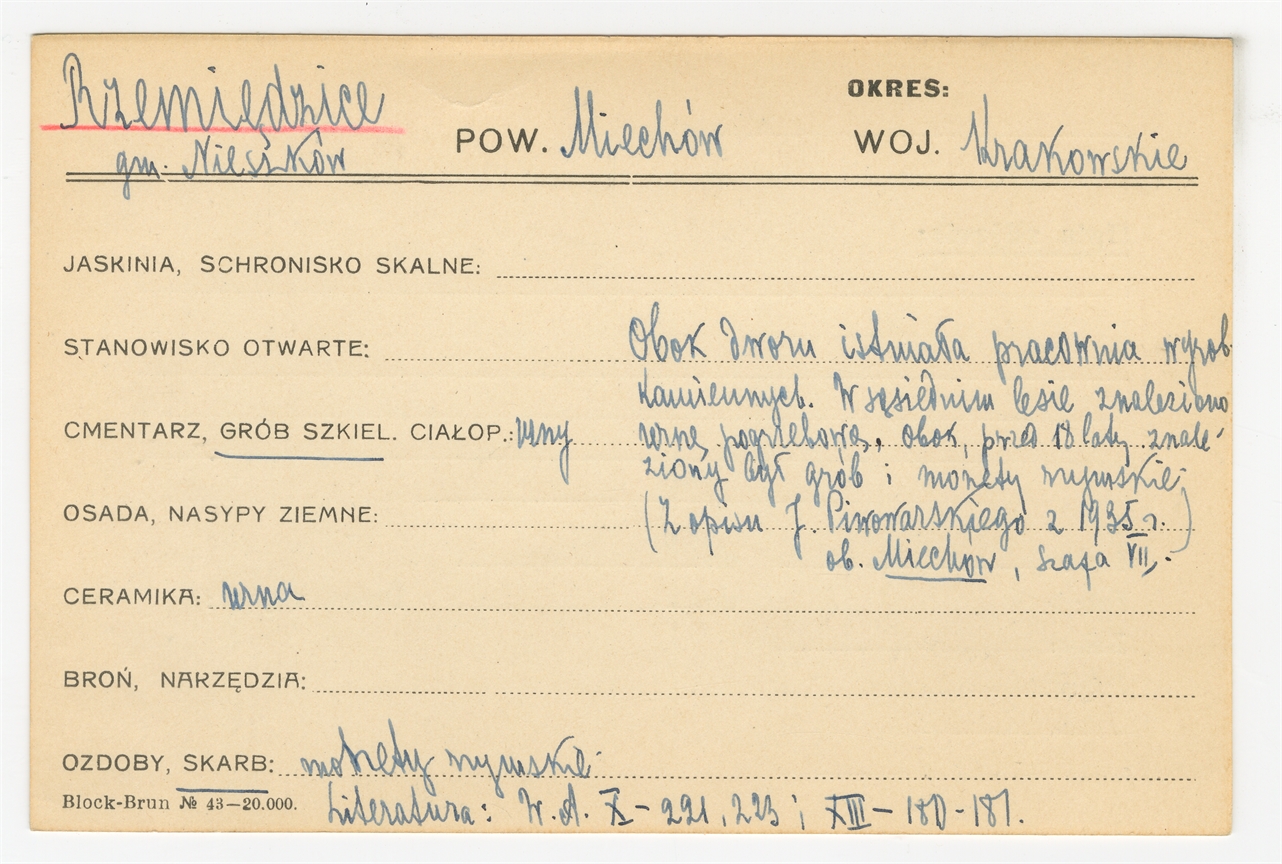 Rzemiędzice
gm. Nieszków POW. Miechów OKRES: WOJ. Krakowskie
JASKINIA, SCHRONISKO SKALNE:
STANOWISKO OTWARTE: Obok dworu istniała pracownia wyrob.
kamiennych. W sąsiednim lesie znaleziono
CMENTARZ, GRÓB SZKIEL. CIAŁOP.: urny urnę pogrzebową, obok, przed 18 laty znale-
ziony był grób i monety rzymskie.
OSADA, NASYPY ZIEMNE: (Z opisu J. Piwowarskiego z 1935 r.)
ob. Miechów, szafa VII,.
CERAMIKA: urna
BROŃ, NARZĘDZIA:
OZDOBY, SKARB: monety rzymskie
Block-Brun № 43—20.000. Literatura: W.A. X — 221, 223 i XIII — 180 - 181.